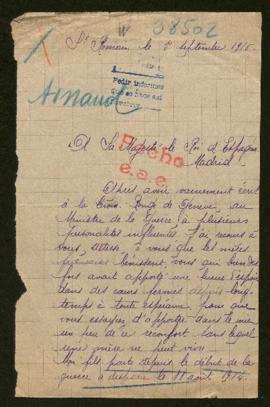 38502
St Romain, le 2 septembre 1915.
Pedir informes
Arnaud
A Sa Majesté le Roi d'Espagne
Madrid.
Hecho
e.a.e.
Après avoir vainement écrit
à la Croix Rouge de Genève, au
Ministre de la Guerre à plusieurs
personnalités influentes. J'ai recours à
vous, Altesse, à vous que les mères
françaises bénissent, vous qui bien des
fois avez apporté une lueur d'espoir
dans des cœurs fermés depuis long-
temps à toute espérance, pour que
vous essayiez d'apporter dans le mien
un peu de ce réconfort sans lequel
une mère ne peut vivre.
Mon fils parti depuis le début de la
guerre a disparu le 11 août 1914.